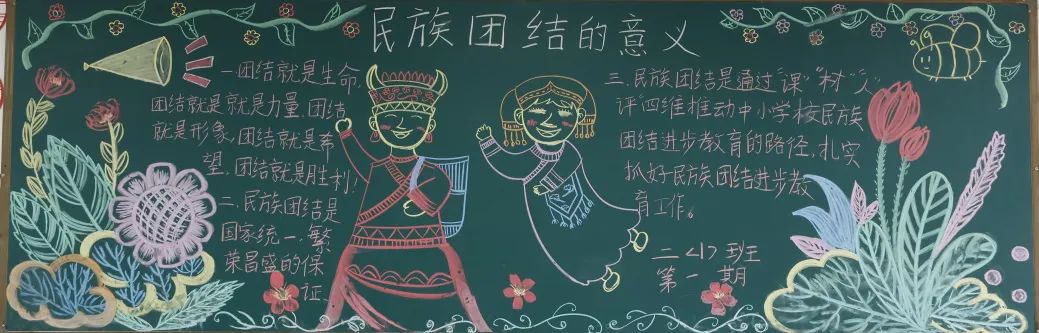 民族团结的意义
一.团结就是生命,
团结就是就是力量.团结
就是形象,团结就是希
望,团结就是胜利!
二.民族团结是
国家统一,繁
荣昌盛的保
证.
三.民族团结是通过"课""材""人"
评四维推动中小学校民族
团结进步教育的路径,扎实
抓好民族团结进步教
育工作。
二<1>班
第一期